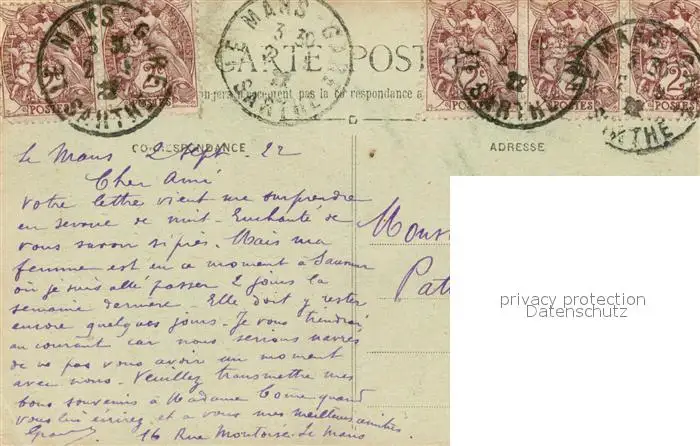 LE MANS - GARE
3 30
2 - 9
22
SARTHE
POSTES
2c
CARTE POST
pas la correspondance a
CORRESPONDANCE
ADRESSE
Le Mans 2 Sept. 22
Cher Ami
Votre lettre vient me surprendre
en service de nuit. Enchanté de
vous savoir si près. Mais ma
femme est en ce moment à Saumur
où je suis allé passer 2 jours la
semaine dernière. Elle doit y rester
encore quelques jours. Je vous tiendrai
au courant car nous serions navrés
de ne pas vous avoir un moment
avec nous. Veuillez transmettre mes
bons souvenirs à Madame Come quand
vous lui écrirez et à vous mes meilleures amitiés.
16 Rue Montoise Le Mans
privacy protection
Datenschutz